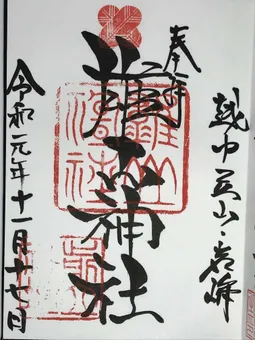 越中立山・岩峅
奉拝
雄山神社
雄山
神社
令和元年十一月廿七日